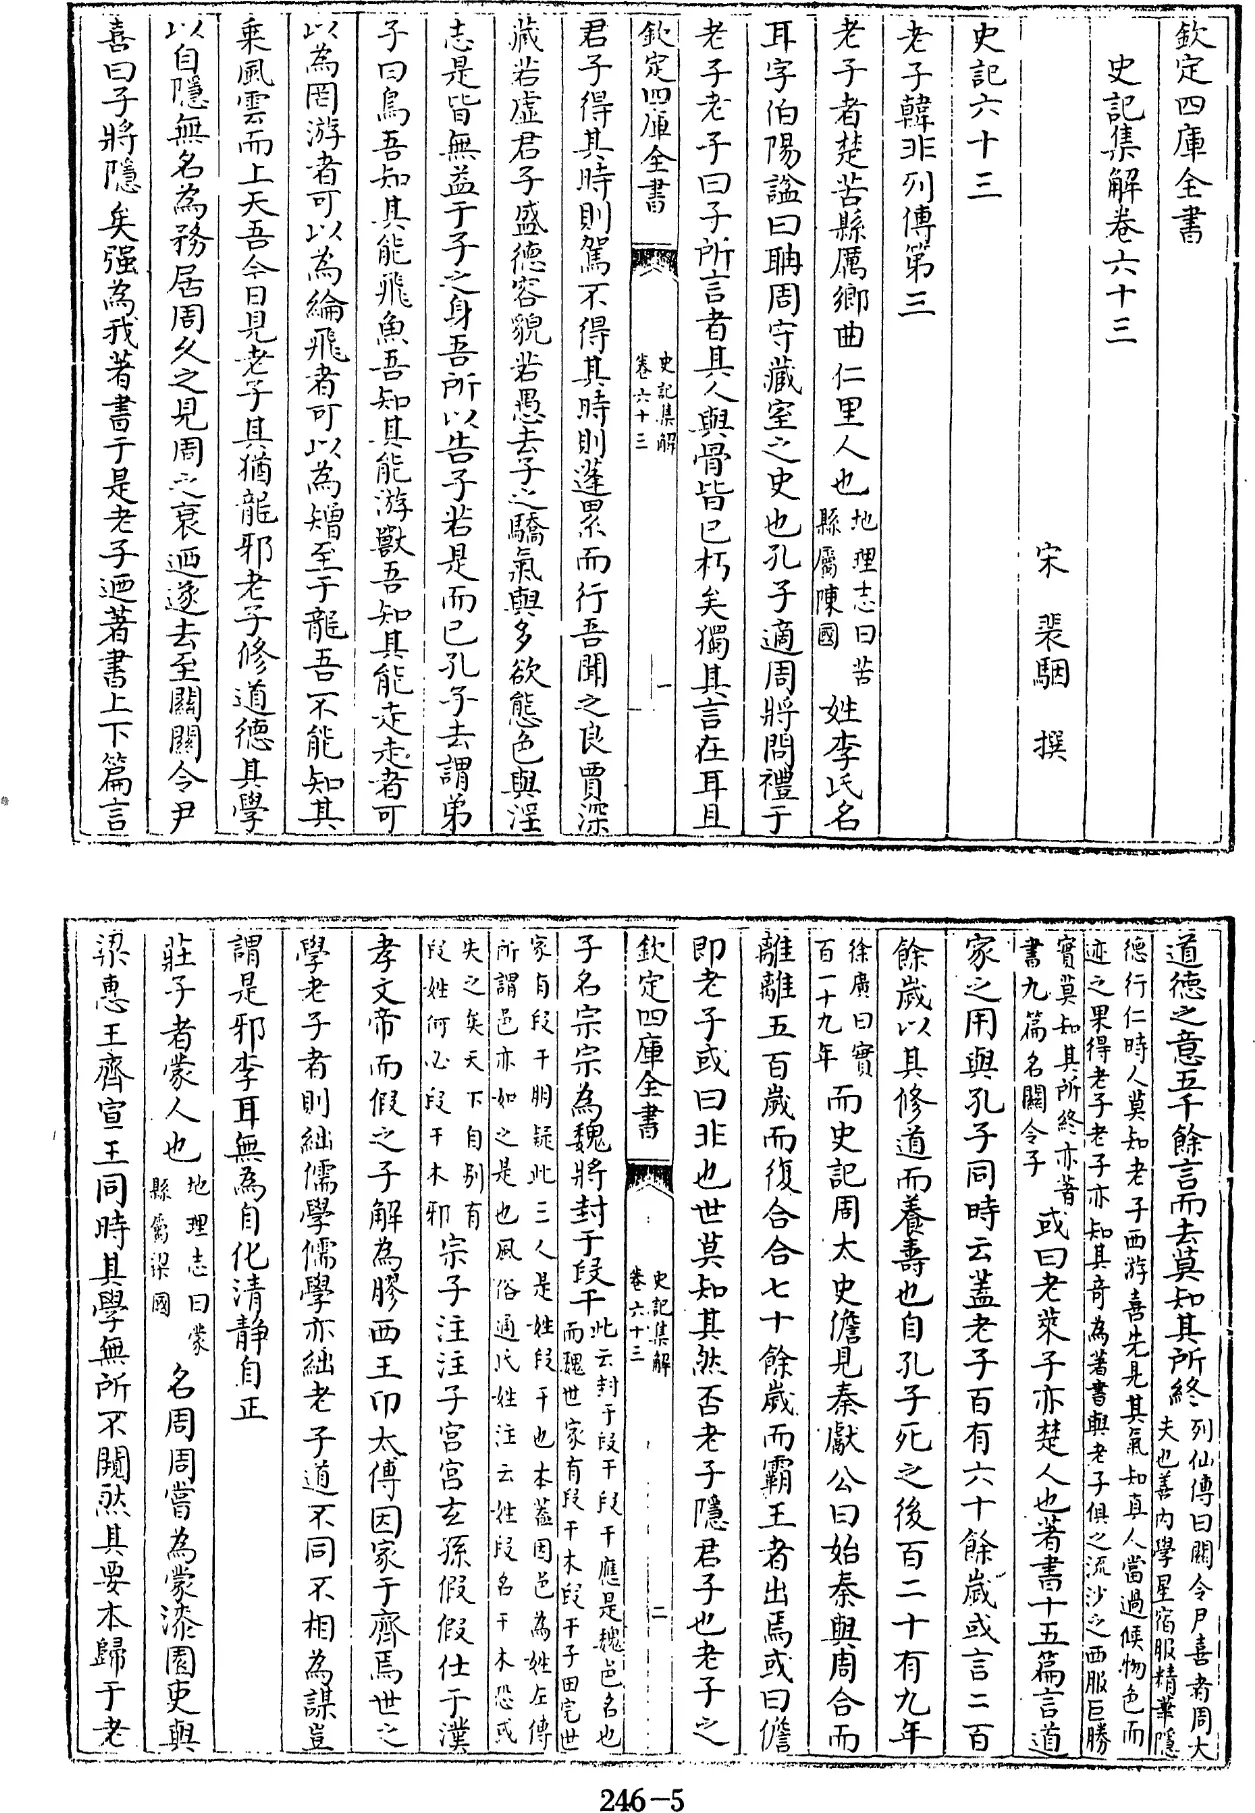 欽定四庫全書
史記集解卷六十三
宋 裴駰 撰
史記六十三
老子韓非列傳第三
老子者楚苦縣厲鄉曲仁里人也地理志曰苦縣屬陳國姓李氏名
耳字伯陽謚曰聃周守藏室之史也孔子適周將問禮于
老子老子曰子所言者其人與骨皆已朽矣獨其言在耳且
欽定四庫全書
史記集解
卷六十三
一
君子得其時則駕不得其時則蓬累而行吾聞之良賈深
藏若虛君子盛德容貌若愚去子之驕氣與多欲態色與淫
志是皆無益于子之身吾所以告子若是而已孔子去謂弟
子曰鳥吾知其能飛魚吾知其能游獸吾知其能走走者可
以為罔游者可以為綸飛者可以為矰至于龍吾不能知其
乘風雲而上天吾今日見老子其猶龍邪老子修道德其學
以自隱無名為務居周久之見周之衰迺遂去至關關令尹
喜曰子將隱矣强為我著書于是老子迺著書上下篇言
道德之意五千餘言而去莫知其所終列仙傳曰關令尹喜者周大夫也善內學星宿服精華隱
德行仁時人莫知老子西游喜先見其氣知真人當過候物色而迹之果得老子老子亦知其奇為著書與老子俱之流沙之西服巨勝
實莫知其所終亦著書九篇名關令子或曰老萊子亦楚人也著書十五篇言道
家之用與孔子同時云蓋老子百有六十餘歲或言二百
餘歲以其修道而養壽也自孔子死之後百二十有九年
徐廣曰實百一十九年而史記周太史儋見秦獻公曰始秦與周合而
離離五百歲而復合合七十餘歲而霸王者出焉或曰儋
即老子或曰非也世莫知其然否老子隱君子也老子之
欽定四庫全書
史記集解
卷六十三
二
子名宗宗為魏將封于段干此云封于段干段干應是魏邑名也而魏世家有段干木段干子田完世
家有段干朋疑此三人是姓段干也本蓋因邑為姓左傳所謂邑亦如之是也風俗通氏姓注云姓段名干木恐或
失之矣天下自別有段姓何必段干木邪宗子注注子宮宮玄孫假假仕于漢
孝文帝而假之子解為膠西王卬太傅因家于齊焉世之
學老子者則絀儒學儒學亦絀老子道不同不相為謀豈
謂是邪李耳無為自化清靜自正
莊子者蒙人也地理志曰蒙縣屬梁國名周周嘗為蒙漆園吏與
梁惠王齊宣王同時其學無所不闚然其要本歸于老
246-5